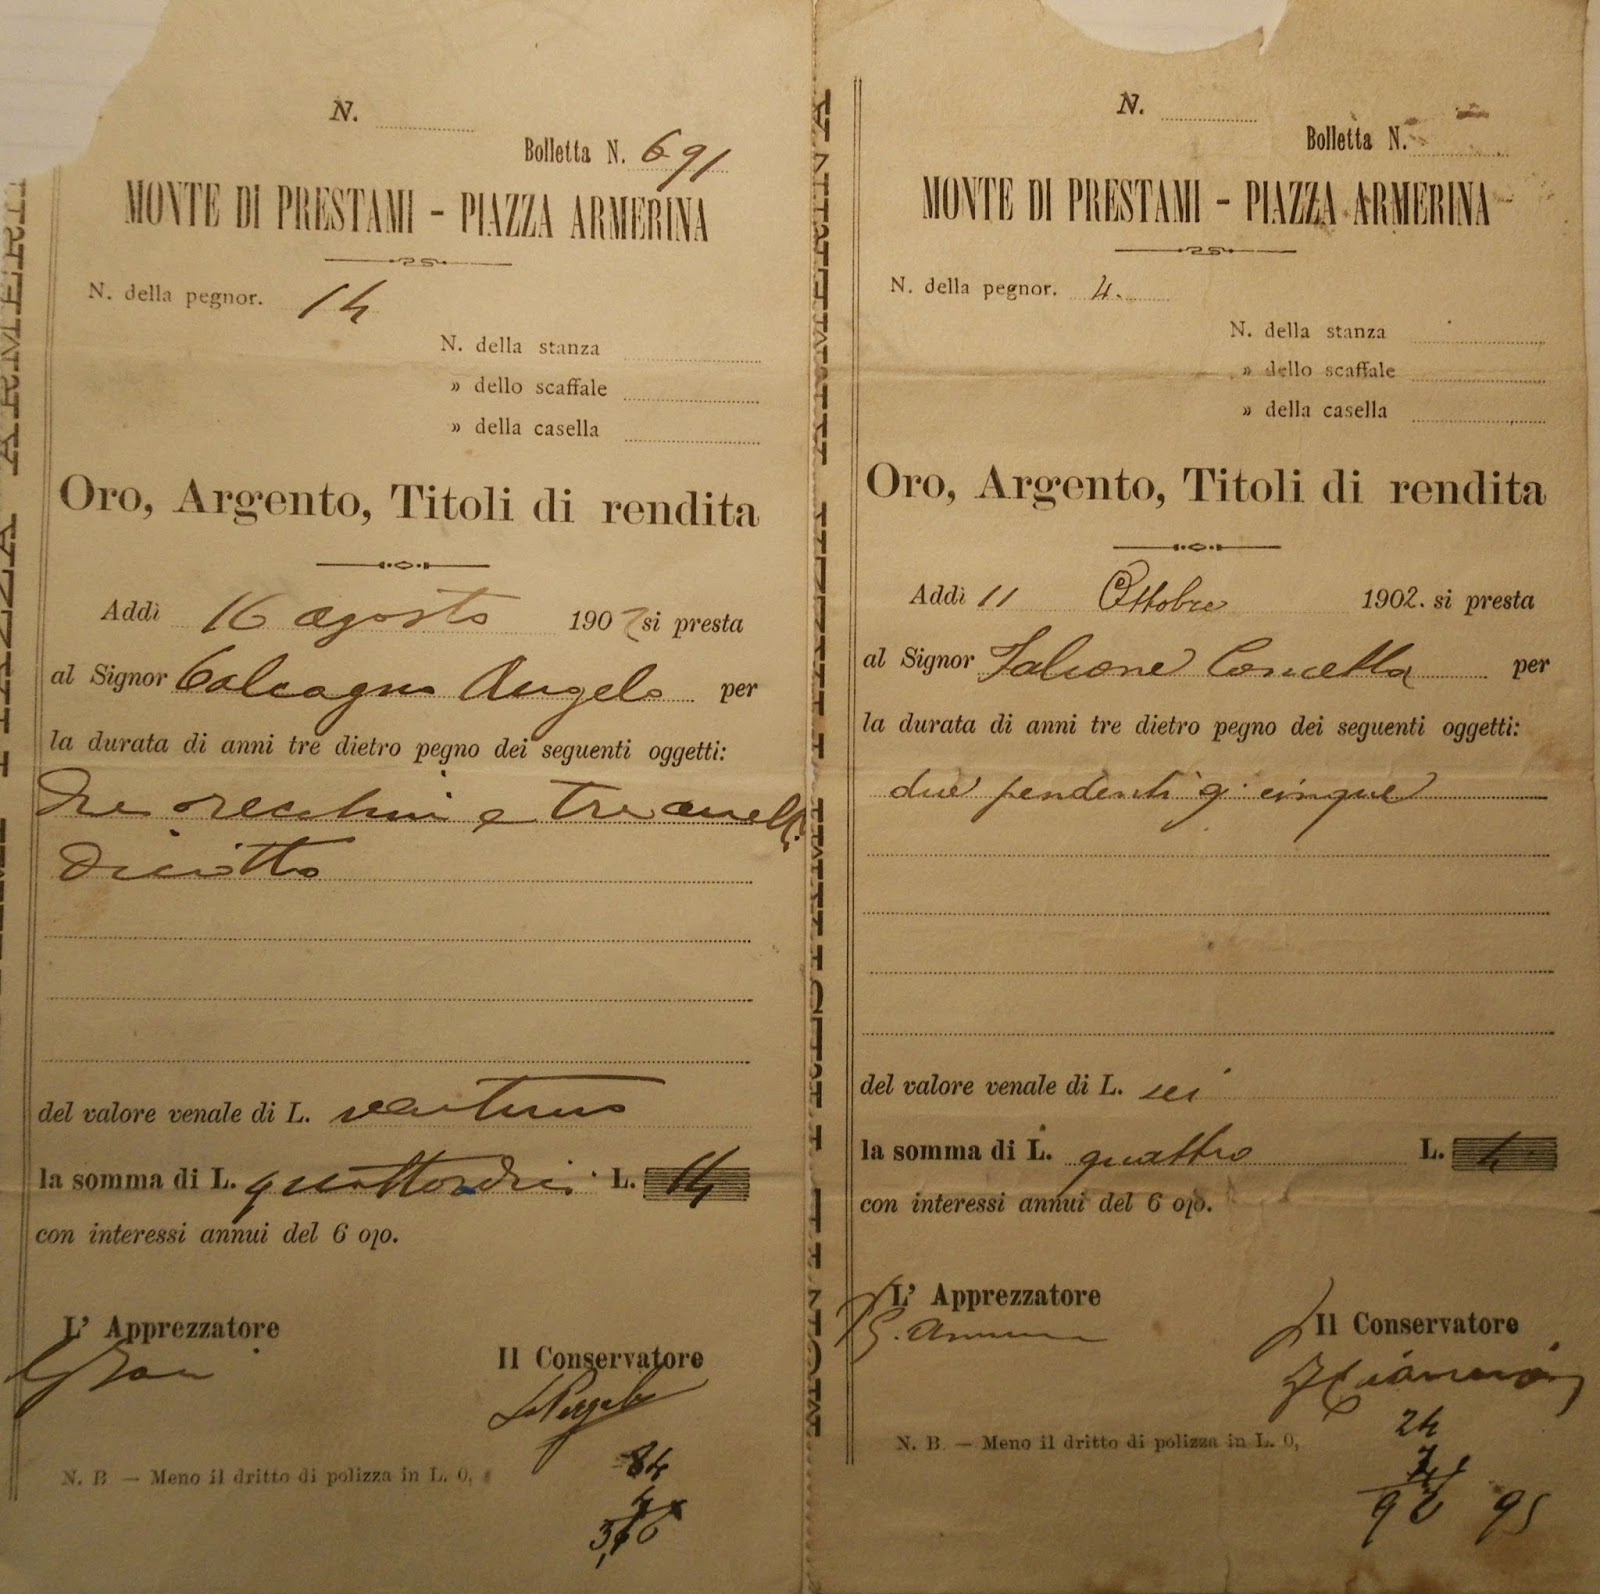 N.
Bolletta N. 691
MONTE DI PRESTAMI - PIAZZA ARMERINA
N. della pegnor. 14
N. della stanza
» dello scaffale
» della casella
Oro, Argento, Titoli di rendita
Addì 16 agosto 1902 si presta
al Signor Calcagno Angelo per
la durata di anni tre dietro pegno dei seguenti oggetti:
Tre orecchini e tre anelli
diciotto
del valore venale di L. ventuno
la somma di L. quattordici L. 14
con interessi annui del 6 o/o.
L' Apprezzatore
Il Conservatore
N. B. — Meno il dritto di polizza in L. 0,
84
N.
Bolletta N.
MONTE DI PRESTAMI - PIAZZA ARMERINA
N. della pegnor. 4.
N. della stanza
» dello scaffale
» della casella
Oro, Argento, Titoli di rendita
Addì 11 Ottobre 1902. si presta
al Signor Falcone Concetta per
la durata di anni tre dietro pegno dei seguenti oggetti:
due pendenti g. cinque
del valore venale di L. sei
la somma di L. quattro L. 4
con interessi annui del 6 o/o.
L' Apprezzatore
Il Conservatore
N. B. — Meno il dritto di polizza in L. 0,
24
95